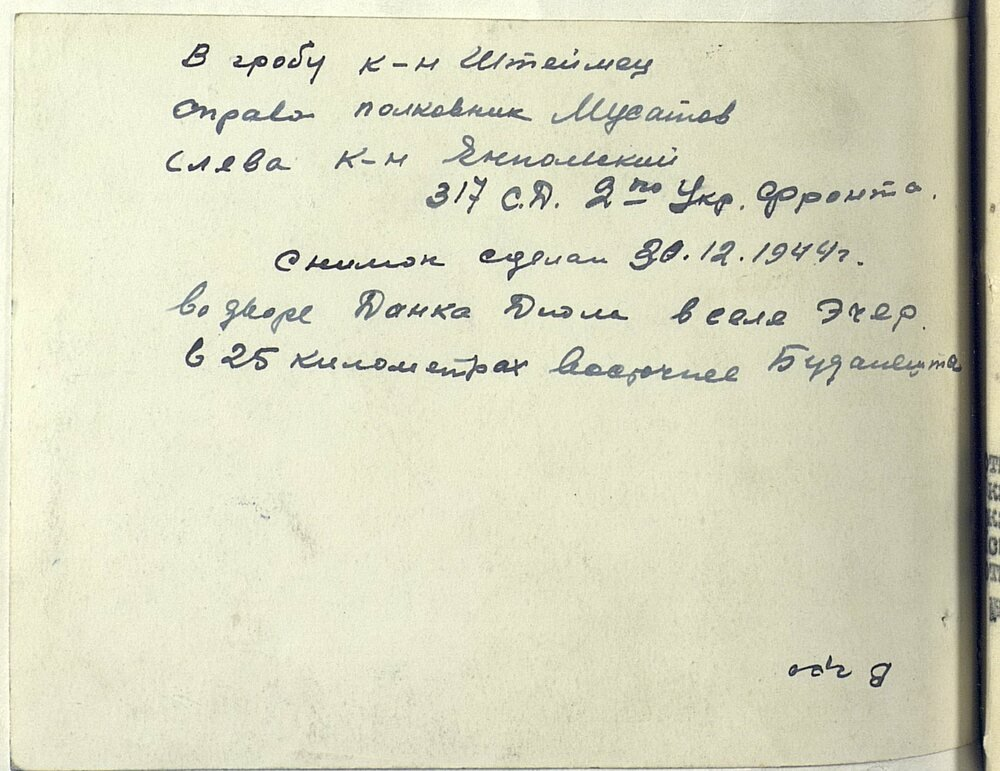 В гробу к-н Штеймец
справа полковник Мусатов
слева к-н Ямпольский
317 С.Д. 2го Укр. Фронта.
Снимок сделан 30.12.1944г.
во дворе Данка Дюла в селе Эчер.
в 25 километрах восточнее Будапешта